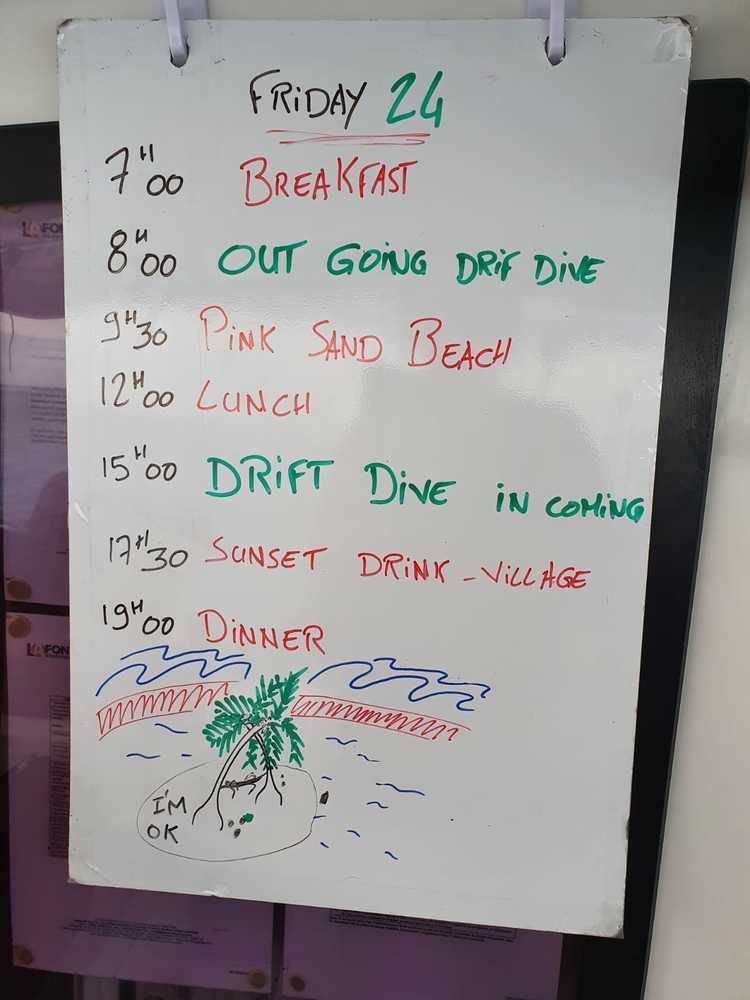 FRiDAY 24
7H00 BREAKFAST
8H00 OUT GOiNG DRiF DiVE
9H30 PiNK SAND BEACH
12H00 LUNCH
15H00 DRiFT DiVE iN COMiNG
17H30 SUNSET DRiNK - ViLLAGE
19H00 DiNNER
I'M
OK